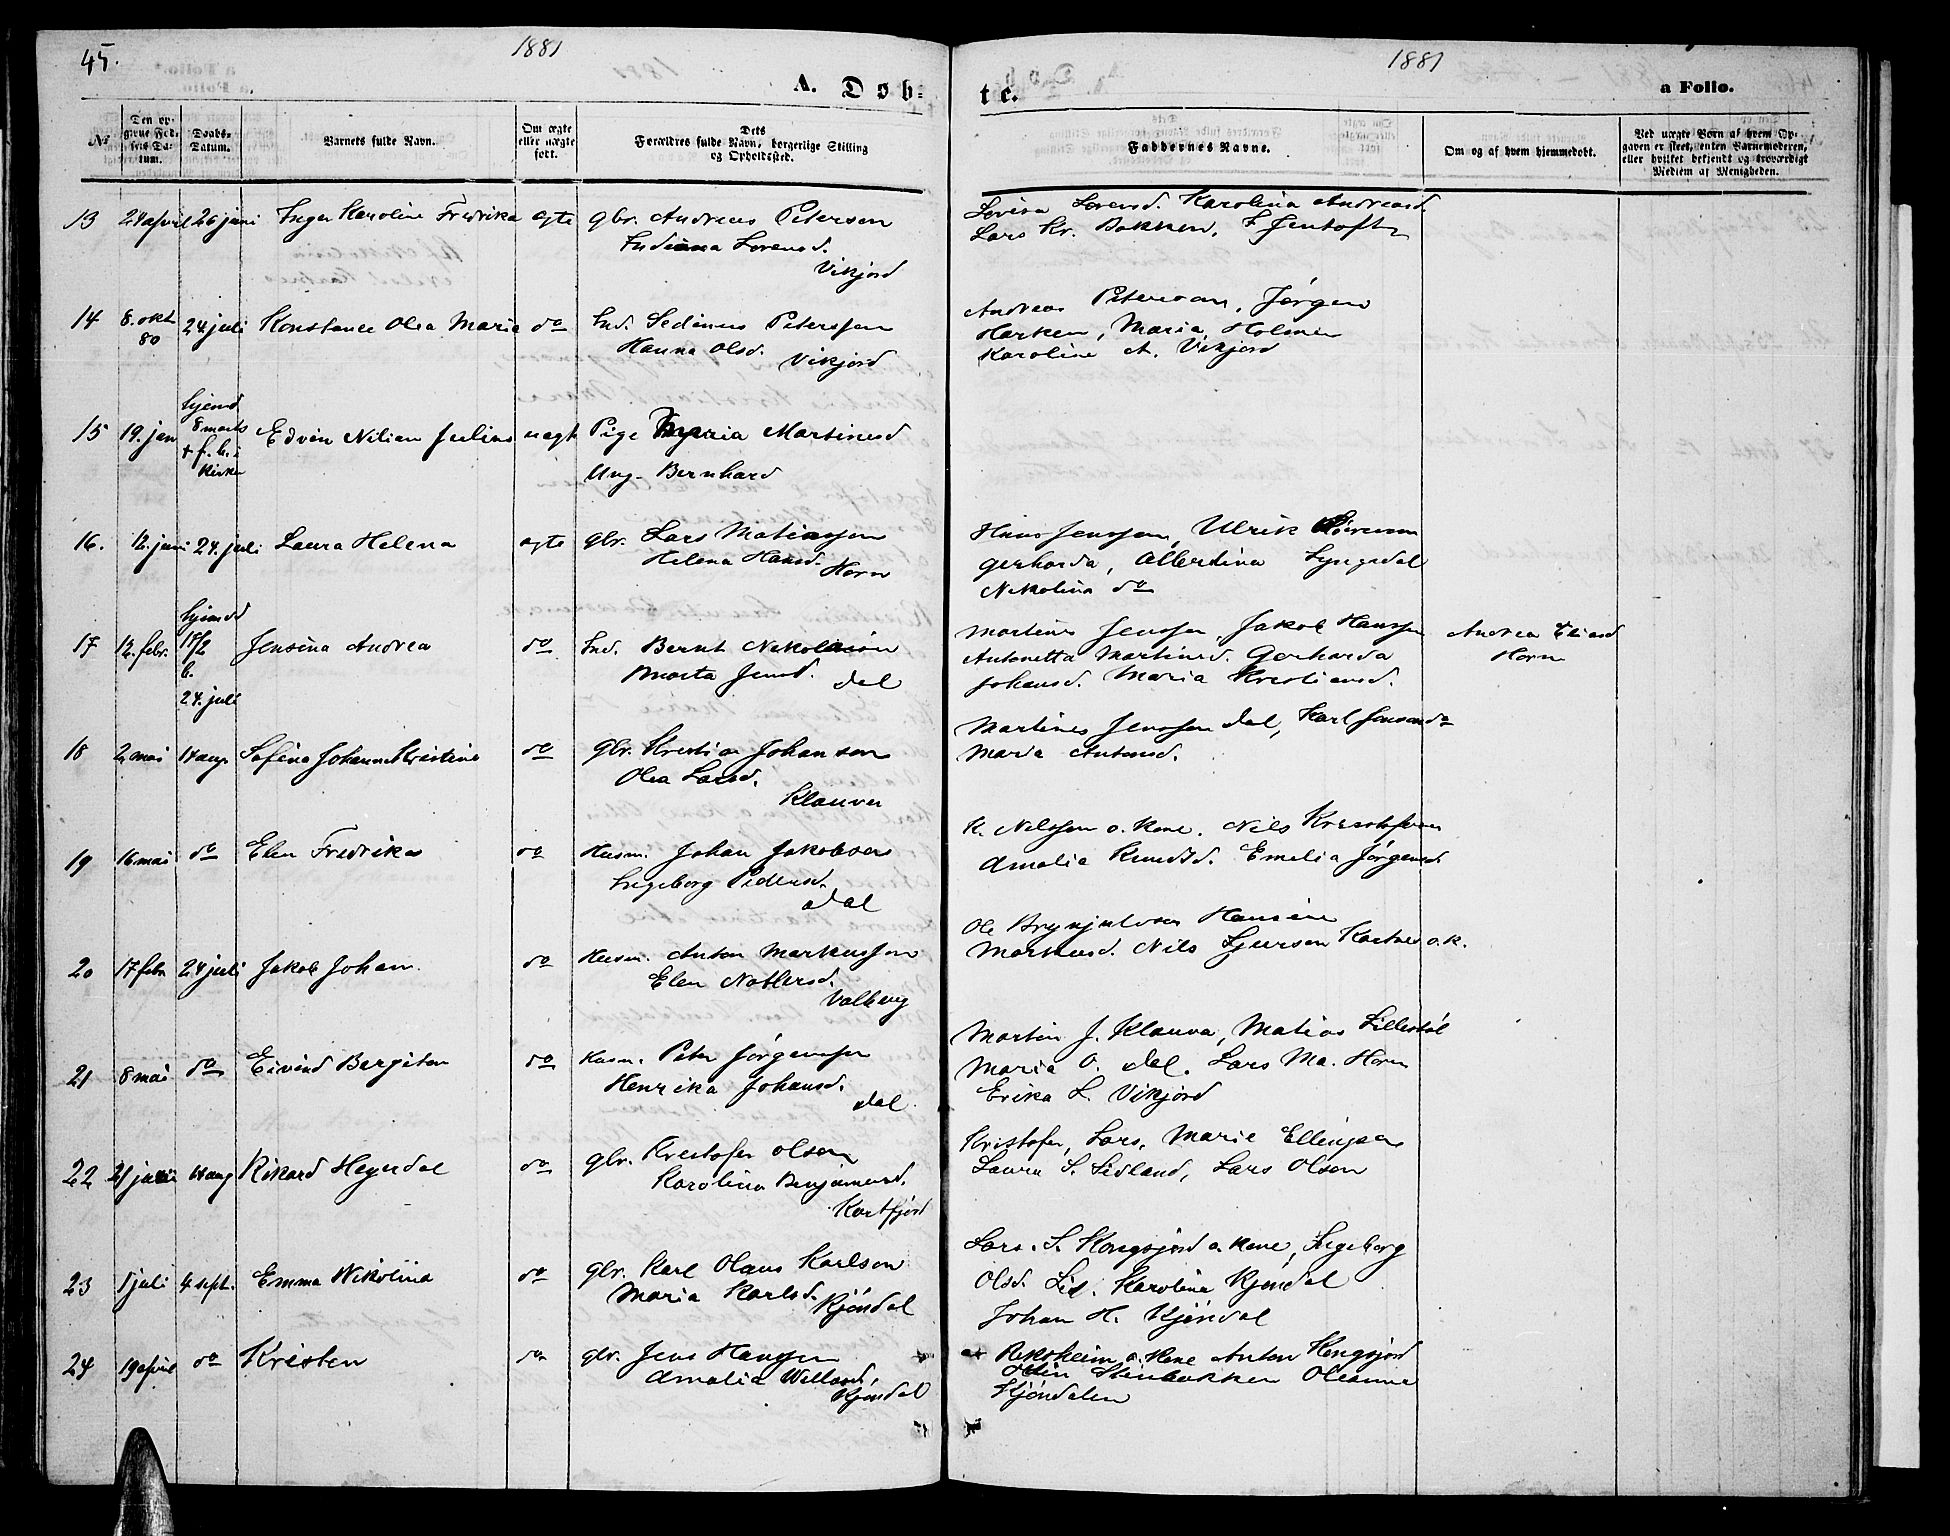 45.
1881
1881
A. Døb-
te.
a Folio.
No
Den op-
givne Fød-
sels Da-
tum.
Daabs-
Datum.
Barnets fulde Navn.
Om ægte
eller uægte
født.
Dets
Forældres fulde Navn, borgerlige Stilling
og Opholdsted.
Faddernes Navne.
Om og af hvem hjemmedøbt.
Ved uægte Børn af hvem Op-
gaven er skeet, enten Barnemoderen,
eller hvilket bekjendt og troværdigt
Medlem af Menigheden.
13 24 april 26 juni Inger Karoline Fredrika ægte gbr. Andreas Petersen
Indianna Lorensd.
Vikjord
Lovisa Lorensd. Karolina Andreasd.
Lars Kr. Bakken, F Jentoft
14 8. okt 80 24 juli Konstance Olea Maria do Ind. Sedenius Peterssen
Hanna Olsd. Vikjord
Andreas Petersen, Jørgen
Harken, Maria Holmen
Karoline A. Vikjord
15 19. jan hjemd
8 marts
+ f. b. i
kirken
Edvin Nilian Julius uægt Pige Maria Martinusd
Ung. Bernhard
16. 12. juni 24. juli Laura Helena ægte gbr. Lars Matiassen
Helena Hansd. Horn
Hans Jenssen, Ulrik
Gerharda, Albertina Lyngedal
Nikolina do
17 12. febr. hjemd
17/2
b.
24. juli
Jensina Andrea do Ind. Bernt Nikolaisen
Marta Jensd. Dal
Martinus Jenssen, Jakob Hanssen
Antonetta Martinusd. Gerharda
Johansd. Maria Kristiansd.
Andrea Eliasd
Horn
18 2 mai 14 aug Sofina Johanna Kristine do gbr. Kristian Johansen
Olea Larsd.
Klauva
Martines Jenssen Dal, Karl Jensen do
Maria Antonsd.
19 16 mai do Elen Fredrika do Husm. Johan Jakobsen
Ingeborg Pedersd.
Dal
K. Nilssen o. Kone. Nils Kristofersen
Amalia Knudsd. Emelia Jørgensd.
20 17 febr 24 juli Jakob Johan do Husm. Anton Markussen
Elen Natlersd.
Valberg
Ole Brynjulvsen Hansine
Markusd. Nils Sjursen Kartnes o.k.
21 8 mai do Eivind Bergiton do Husm. Peter Jørgensen
Henrika Johansd.
Dal
Martin J. Klauva, Matias Lillestöl
Maria O. Dal. Lars Ma. Horn
Erika L. Vikjord
22 21 juni 14 aug Rikard Hegerdal do gbr. Kristofer Olsen
Karolina Benjaminsd.
Kartfjord
Kristofer, Lars, Marie Ellingsen
Laura S. Lidland, Lars Olsen
23 1 juli 4 sept. Emma Nikolina do gbr. Karl Olaus Karlsen
Maria Karlsd. Kjöndal
Lars. S. Hongsjord o. Kone, Ingeborg
Olsd. Lid. Karolina Kjöndal
Johan H. Kjöndal
24 19 april do Kristen do gbr. Jens Hanssen
Amalia Willassd,
Kjöndal
Reksheim o. Kone Anton Hongsjord
Steinbakken Oleanna
Kjöndalen